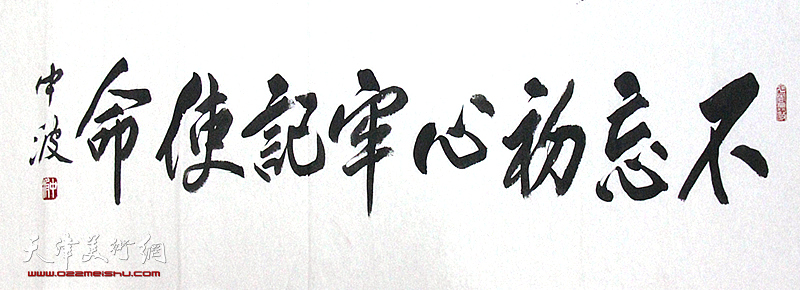 不忘初心牢記使命
中波
天津美術網
www.022meishu.com